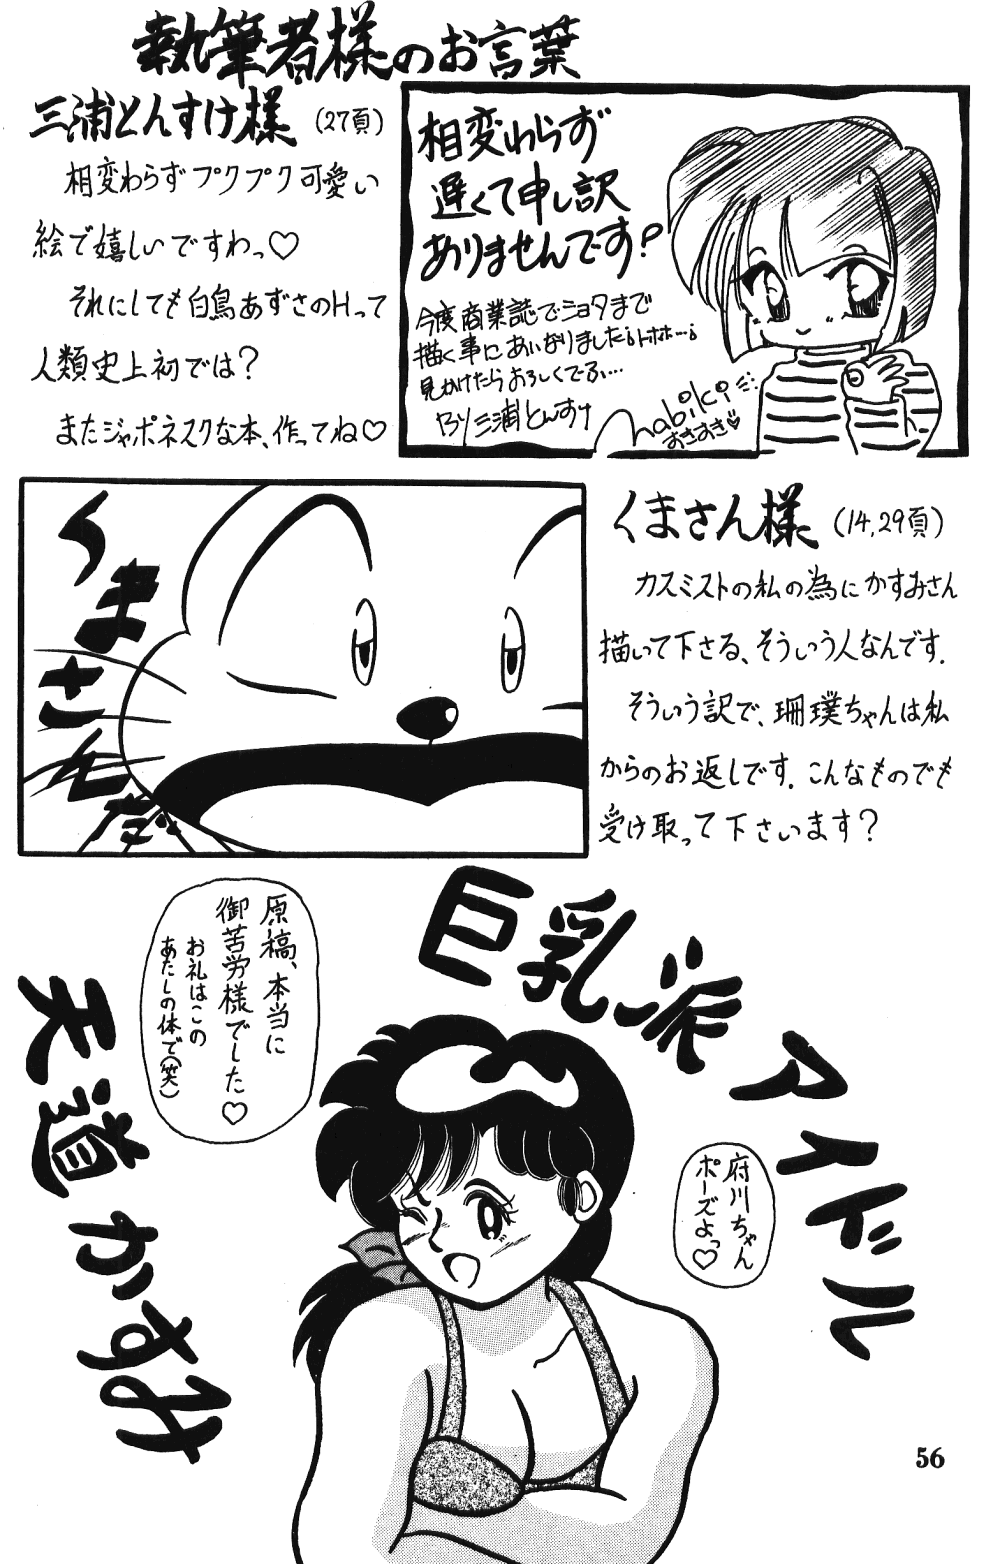 執筆者様のお言葉
三浦とんすけ様 (27頁)
相変わらずプクプク可愛い
絵で嬉しいですわっ♡
それにしても白鳥あずさのHって
人類史上初では?
またジャポネスクな本、作ってね♡
相変わらず
遅くて申し訳
ありませんです?
今度商業誌でショタまで
描く事にあいなりました。トホホ…。
見かけたらよろしくでふ…
三浦とんすけ
nabiki
すきすき♡
くまさん様 (14,29頁)
カスミストの私の為にかすみさん
描いて下さる、そういう人なんです.
そういう訳で、珊璞ちゃんは私
からのお返しです. こんなものでも
受け取って下さいます?
くまさんだ
原稿、本当に
御苦労様でした♡
お礼はこの
あたしの体で(笑)
巨乳派アイドル
天道かすみ
府川ちゃん
ポーズよっ♡
56